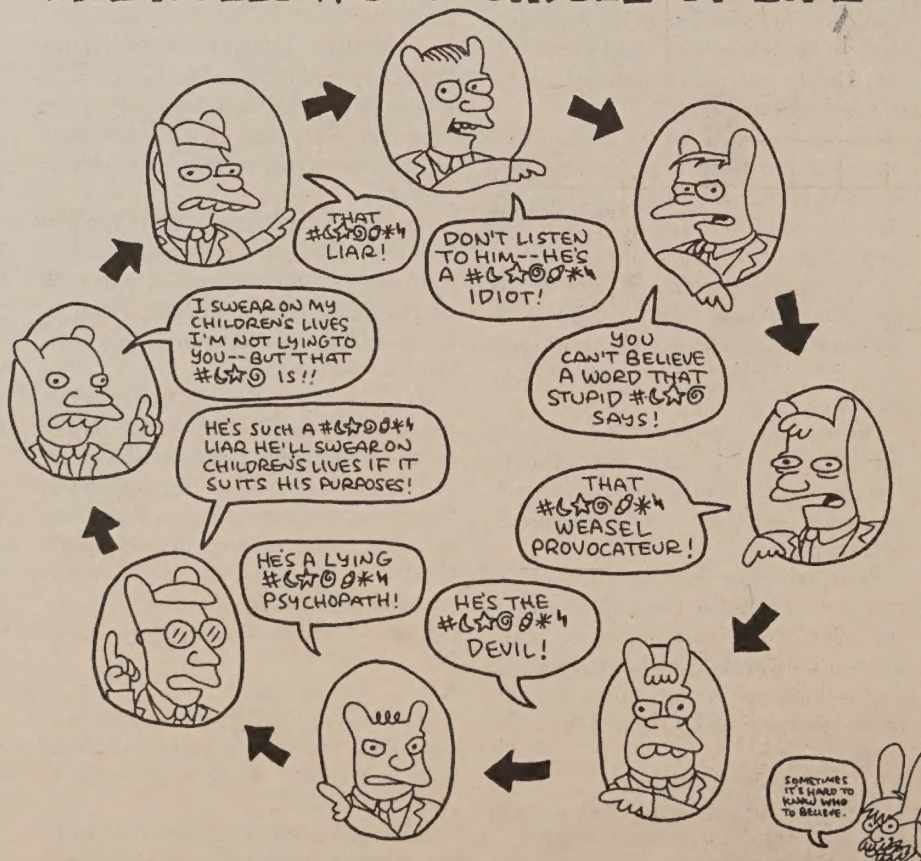 DON'T LISTEN
TO HIM--HE'S
A #☾☆@🖉*ϟ
IDIOT!
YOU
CAN'T BELIEVE
A WORD THAT
STUPID #☾☆@
SAYS!
THAT
#☾☆@🖉*ϟ
WEASEL
PROVOCATEUR!
HE'S THE
#☾☆@🖉*ϟ
DEVIL!
HE'S A LYING
#☾☆@🖉*ϟ
PSYCHOPATH!
HE'S SUCH A #☾☆@🖉*ϟ
LIAR HE'LL SWEAR ON
CHILDREN'S LIVES IF IT
SUITS HIS PURPOSES!
I SWEAR ON MY
CHILDREN'S LIVES
I'M NOT LYING TO
YOU--BUT THAT
#☾☆@ IS!!
THAT
#☾☆@🖉*ϟ
LIAR!
SOMETIMES
IT'S HARD TO
KNOW WHO
TO BELIEVE.